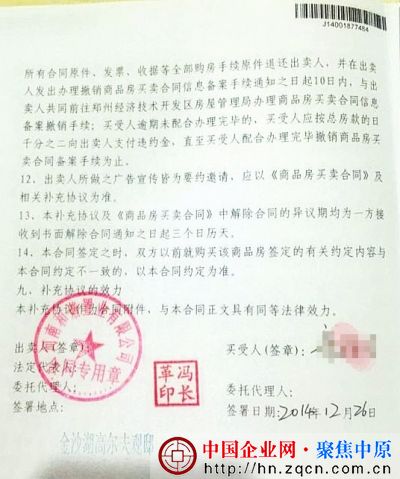 J14001877484
所有合同原件、发票、收据等全部购房手续原件退还出卖人，并在出卖
人发出办理撤销商品房买卖合同信息备案手续通知之日起10日内，与出
卖人共同前往郑州经济技术开发区房屋管理局办理商品房买卖合同信息
备案撤销手续；买受人逾期未配合办理完毕的，买受人应按总房款的日
千分之二向出卖人支付违约金，直至买受人配合办理完毕撤销商品房买
卖合同备案手续为止。
12、出卖人所做之广告宣传皆为要约邀请，应以《商品房买卖合同》及
相关补充协议为准。
13、本补充协议及《商品房买卖合同》中解除合同的异议期均为一方接
收到书面解除合同通知之日起三个日历天。
14、本合同签定之时，双方以前就购买该商品房签定的有关约定内容与
本合同约定不一致的，以本合同约定为准。
九、补充协议的效力
本补充协议作为合同附件，与本合同正文具有同等法律效力。
出卖人(签章)：
买受人（签章）：
法定代表人：
委托代理人：
委托代理人：
签署地点：
签署日期：2014年12月26日
置业有限公司
合同专用章
冯长革印
金沙湖高尔夫观邸
中国企业网·聚焦中原
http://hn.zqcn.com.cn